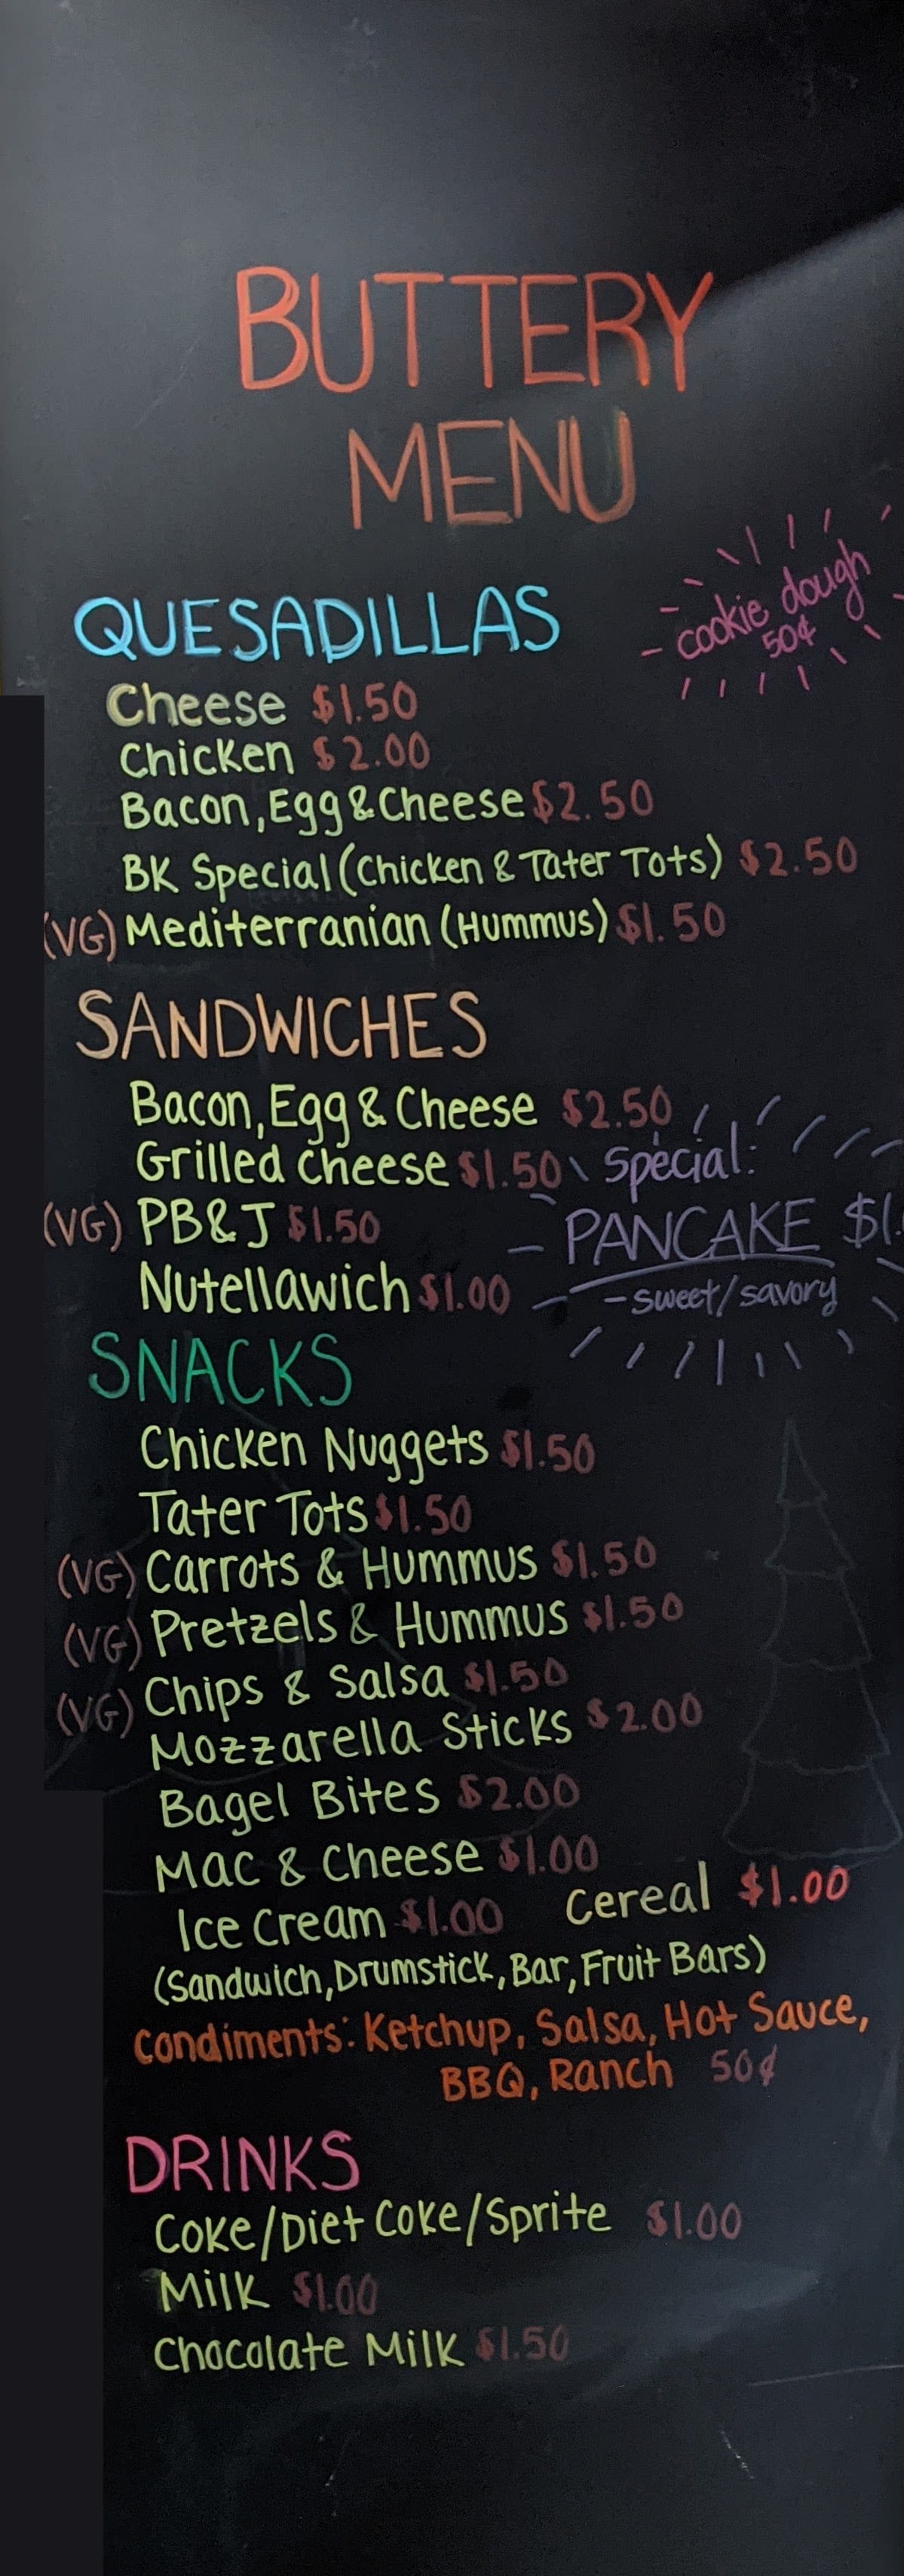 BUTTERY
MENU
cookie dough
50¢
QUESADILLAS
Cheese $1.50
Chicken $2.00
Bacon, Egg & Cheese $2.50
BK Special (Chicken & Tater Tots) $2.50
(VG) Mediterranian (Hummus) $1.50
SANDWICHES
Bacon, Egg & Cheese $2.50
Grilled Cheese $1.50
(VG) PB&J $1.50
Nutellawich $1.00
Special:
PANCAKE $1.
-sweet/savory
SNACKS
Chicken Nuggets $1.50
Tater Tots $1.50
(VG) Carrots & Hummus $1.50
(VG) Pretzels & Hummus $1.50
(VG) Chips & Salsa $1.50
Mozzarella Sticks $2.00
Bagel Bites $2.00
Mac & Cheese $1.00
Ice Cream $1.00 Cereal $1.00
(Sandwich, Drumstick, Bar, Fruit Bars)
Condiments: Ketchup, Salsa, Hot Sauce,
BBQ, Ranch 50¢
DRINKS
Coke/Diet Coke/Sprite $1.00
Milk $1.00
Chocolate Milk $1.50